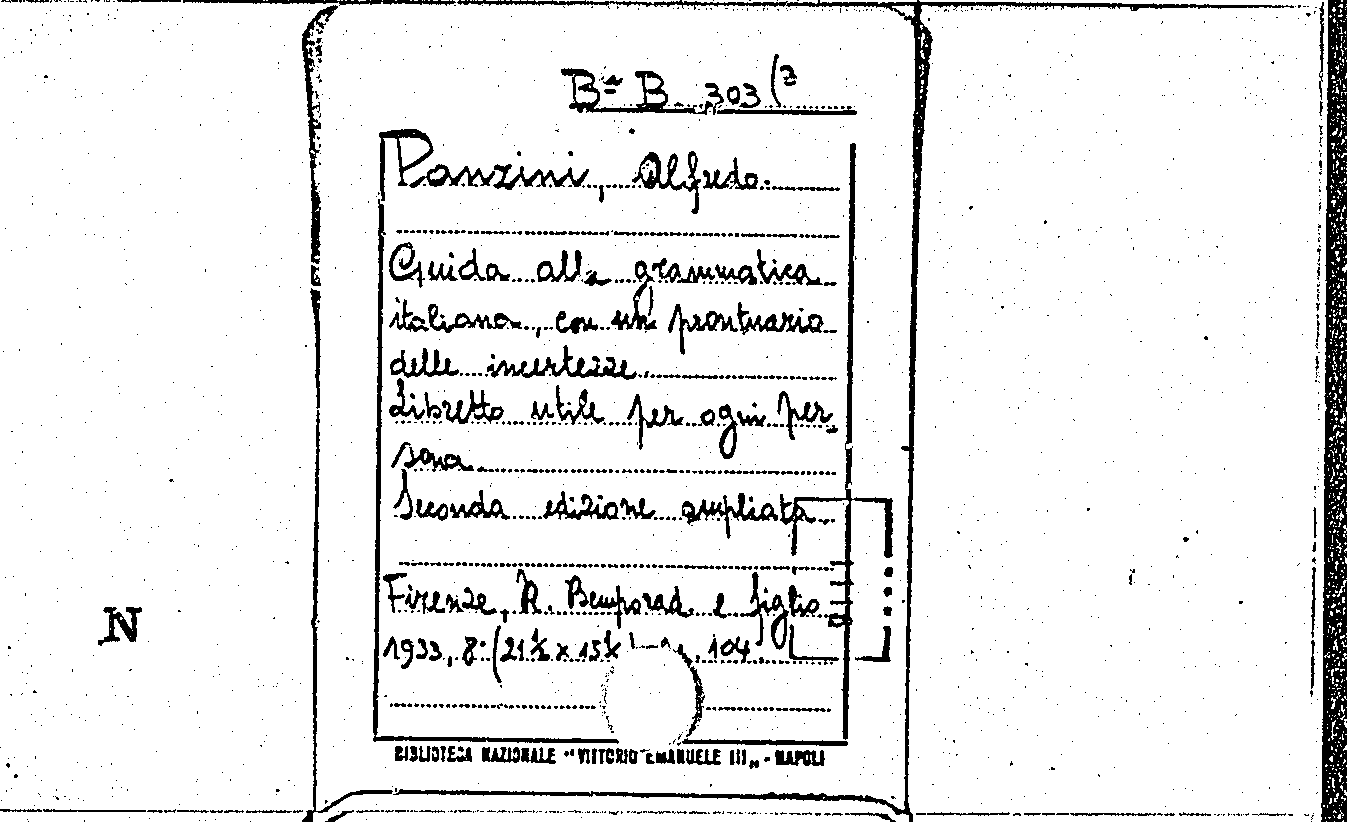 Bᵃ B. 303 (2
Panzini, Alfredo.
Guida alla grammatica
italiana, con un prontuario
delle incertezze.
Libretto utile per ogni per-
sona.
Seconda edizione ampliata.
Firenze, R. Bemporad e figlio
1933, 8° (21½ x 15½ 104.
N
BIBLIOTECA NAZIONALE "VITTORIO EMANUELE III„ - NAPOLI